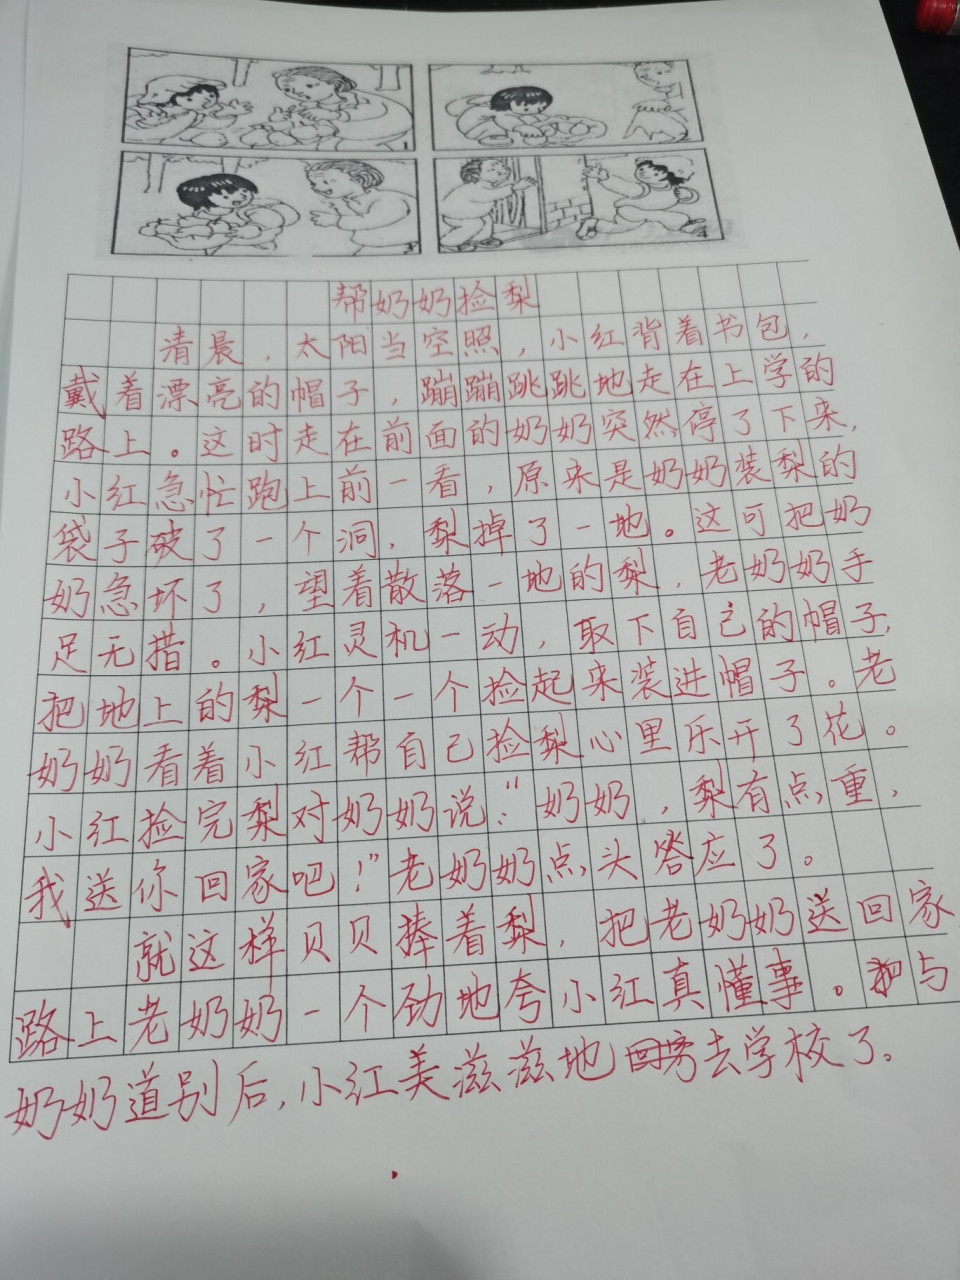 帮奶奶捡梨
清晨，太阳当空照，小红背着书包，
戴着漂亮的帽子，蹦蹦跳跳地走在上学的
路上。这时走在前面的奶奶突然停了下来，
小红急忙跑上前一看，原来是奶奶装梨的
袋子破了一个洞，梨掉了一地。这可把奶
奶急坏了，望着散落一地的梨，老奶奶手
足无措。小红灵机一动，取下自己的帽子，
把地上的梨一个一个捡起来装进帽子。老
奶奶看着小红帮自己捡梨心里乐开了花。
小红捡完梨对奶奶说：“奶奶，梨有点重，
我送你回家吧！”老奶奶点头答应了。
就这样贝贝捧着梨，把老奶奶送回家
路上老奶奶一个劲地夸小红真懂事。与
奶奶道别后，小红美滋滋地去学校了。